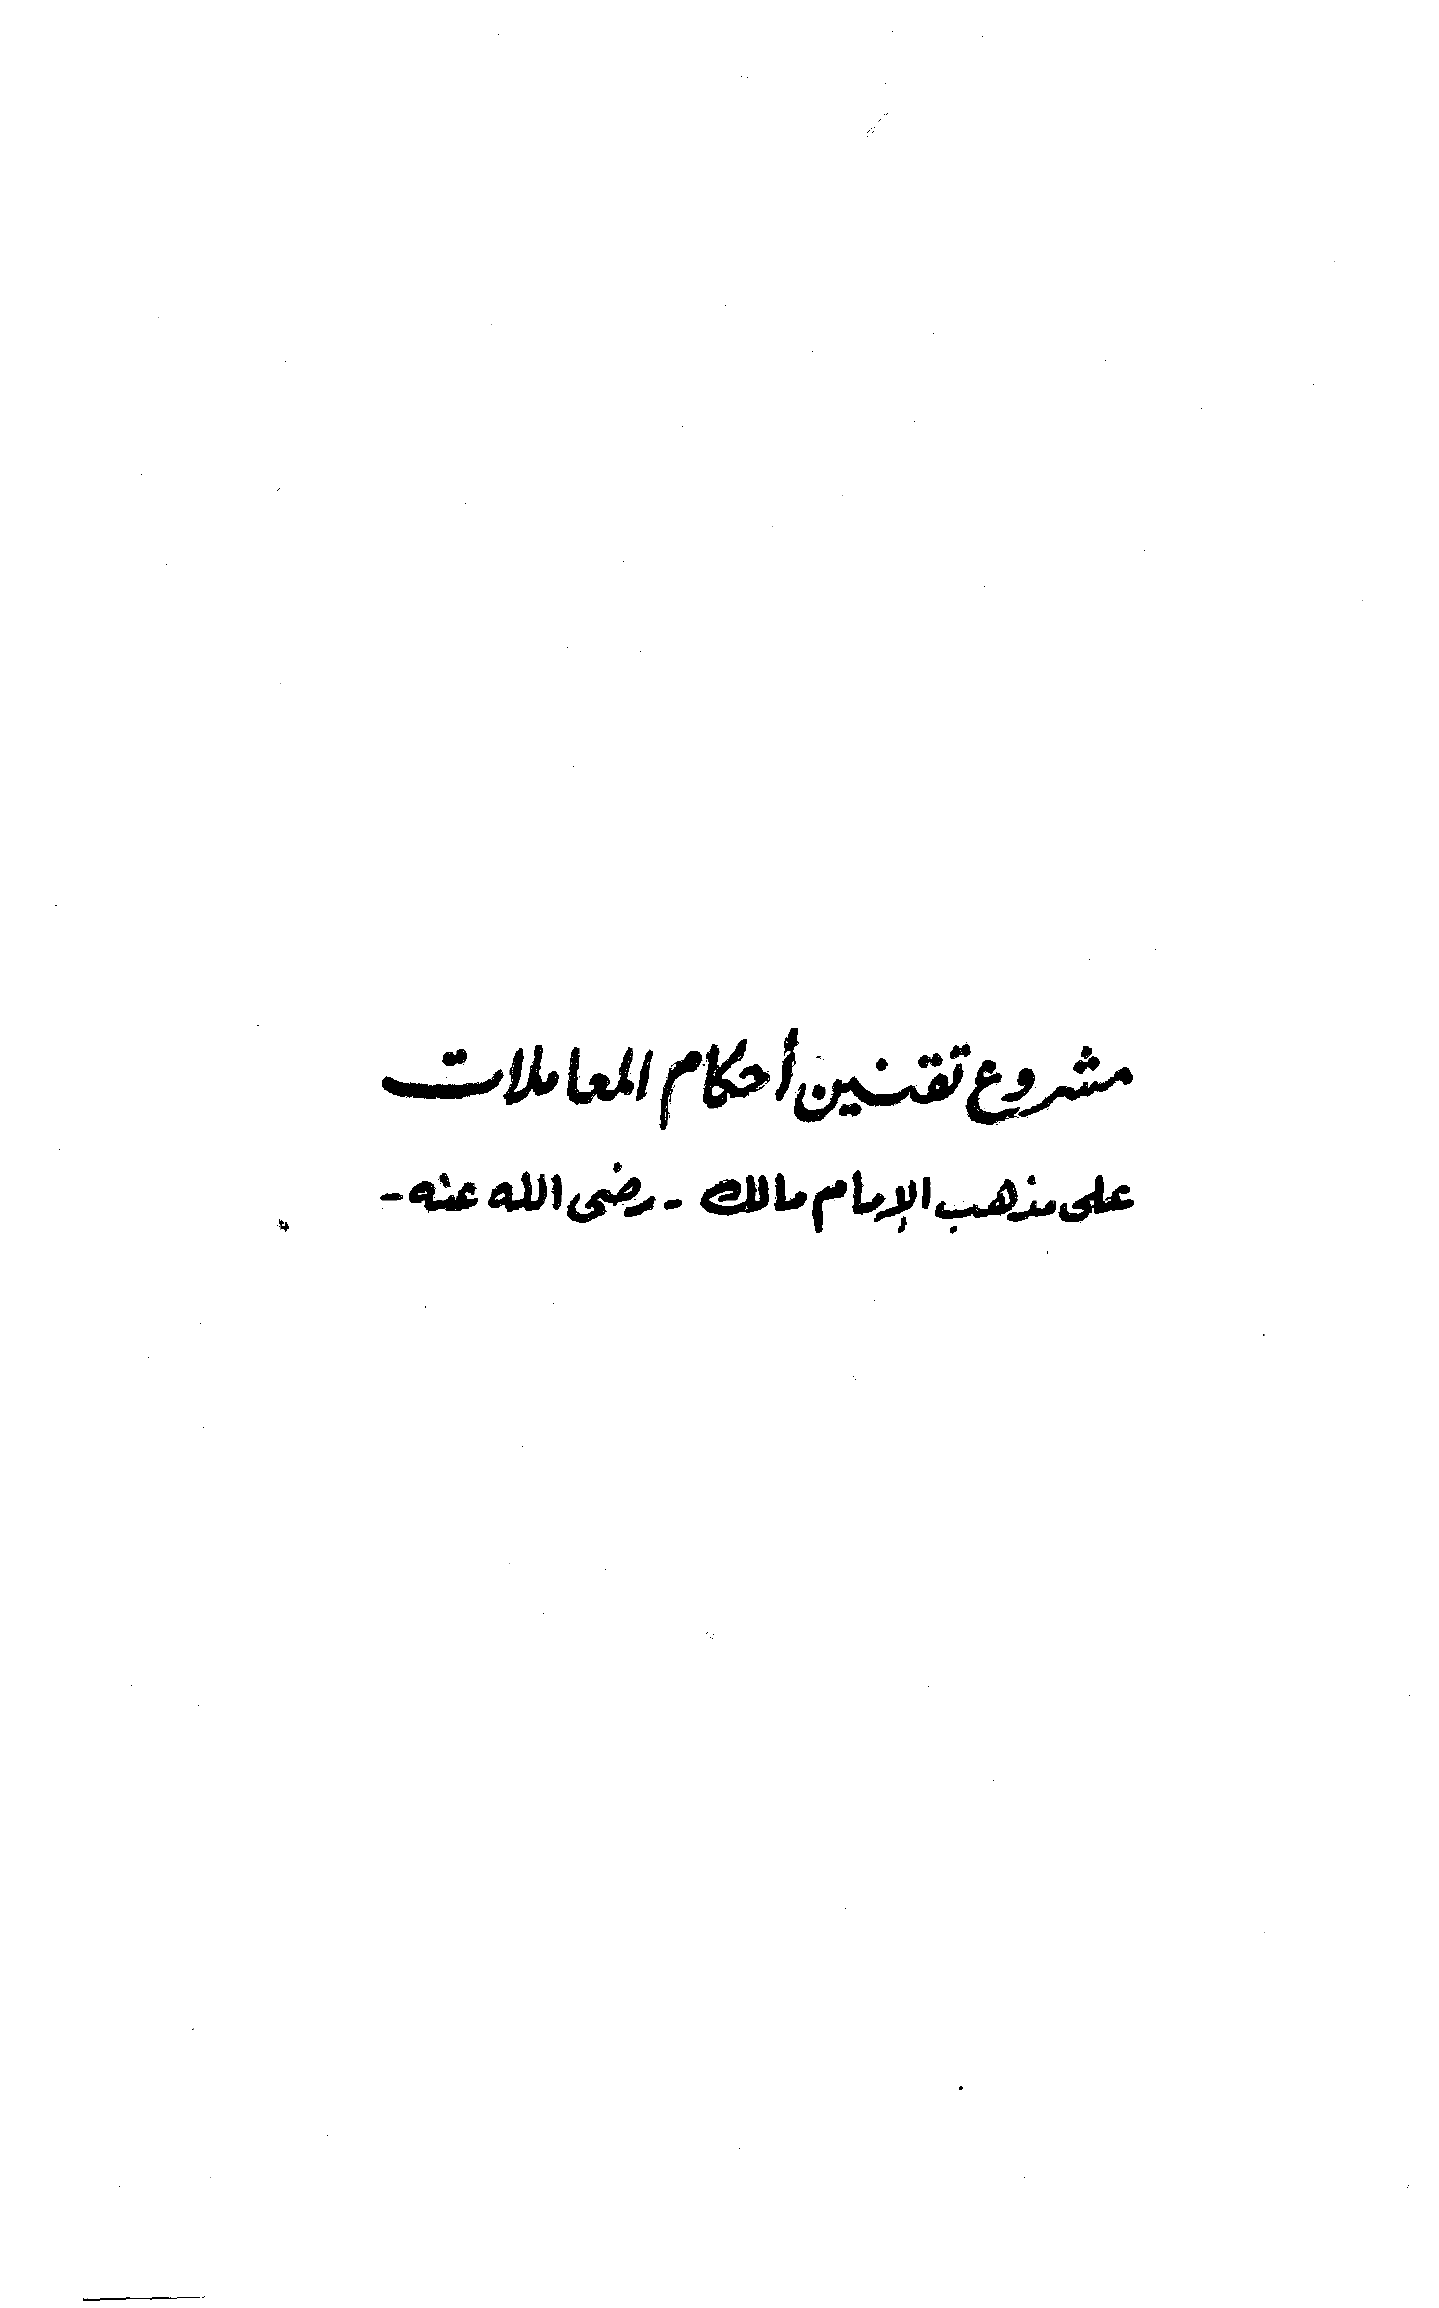 مشروع تقنين أحكام المعاملات
على مذهب الإمام مالك - رضى الله عنه -